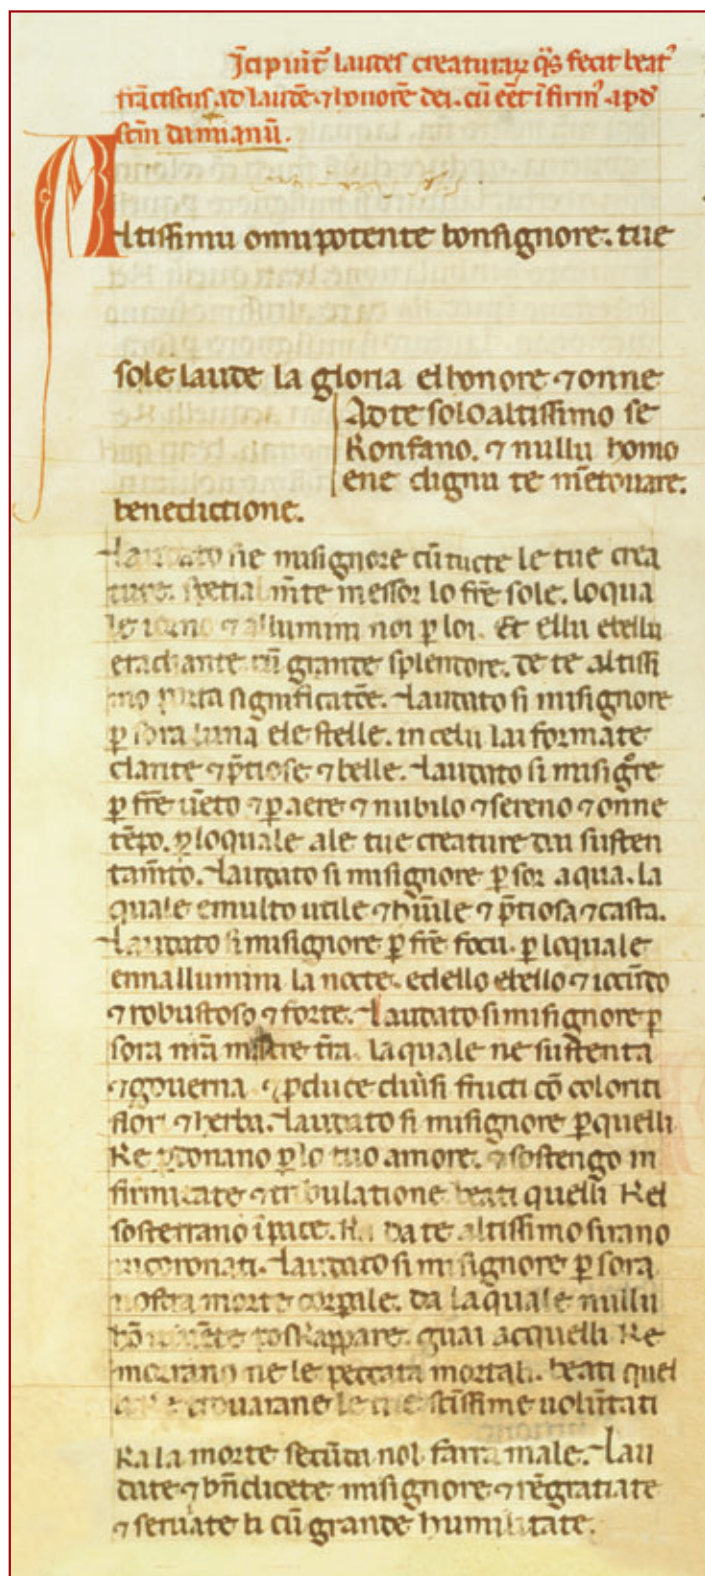 Jcipiūt laudes creaturaꝝ qͥs fecit beatꝰ
frāciscus ad laudē ⁊ honorē dei. cū eēt ī firmꝰ apḋ
scm̄ damianū.
Altissimu omnipotente bonsignore. tue
sole laude la gloria elhonore ⁊ onne
Ad te solo altissimo se
Konfano. ⁊ nullu homo
ene dignu te mētovare.
benedictione.
Laudato sie misignore cū tucte le tue crea
ture. spetialm̄te messor lo frē sole. loqua
le iorno ⁊ allumini noi ꝑ loi. Et ellu ebellu
eradiante cū grande splendore. de te altissi
mo porta significatōe. Laudato si misignore
ꝑ sora luna ele stelle. in celu lai formate
clarite ⁊ p̄tiose ⁊ belle. Laudato si misigre
ꝑ frē uēto ⁊ ꝑ aere ⁊ nubilo ⁊ sereno ⁊ onne
tēpo. ꝑ loquale ale tue creature dai susten
tam̄to. Laudato si misignore ꝑ sor aqua. la
quale emulto utile ⁊ hūile ⁊ p̄tiosa ⁊ casta.
Laudato si misignore ꝑ frē focu. ꝑ loquale
ennallumini la nocte. edello ebello ⁊ iocūdo
⁊ robustoso ⁊ forte. Laudato si misignore ꝑ
sora nr̄a matre tr̄a. la quale ne sustenta
⁊ gouerna ⁊ ꝓduce diūsi fructi cō coloriti
flori ⁊ herba. Laudato si misignore ꝑ quelli
Ke ꝑdonano ꝑ lo tuo amore. ⁊ sostengo in
firmitate ⁊ tribulatione beati quelli Kel
sosterrano ī pace. Ka da te altissimo sirano
incoronati. Laudato si misignore ꝑ sora
nostra morte corꝑale. da la quale nullu
hō uiuēte poskappare. guai acquelli Ke
morrano ne le peccata mortali. beati quel
li Ke trouarane le tue sctissime uolūtati
Ka la morte secūda nol farra male. Lau
date ⁊ bn̄dicete misignore ⁊ rēgratiate
⁊ seruiate li cū grande humilitate.